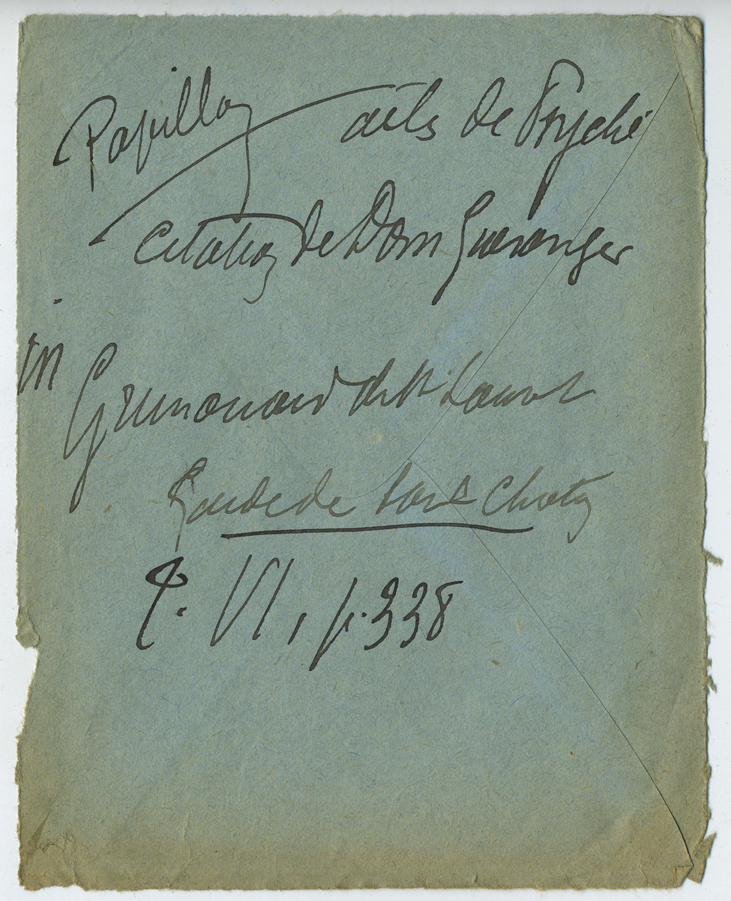 Papillon ailes de Psyché
citation de Dom Gueranger
in
Grimouard de St Laurent
Guide de l'art Chrétien
T. VI, p. 338